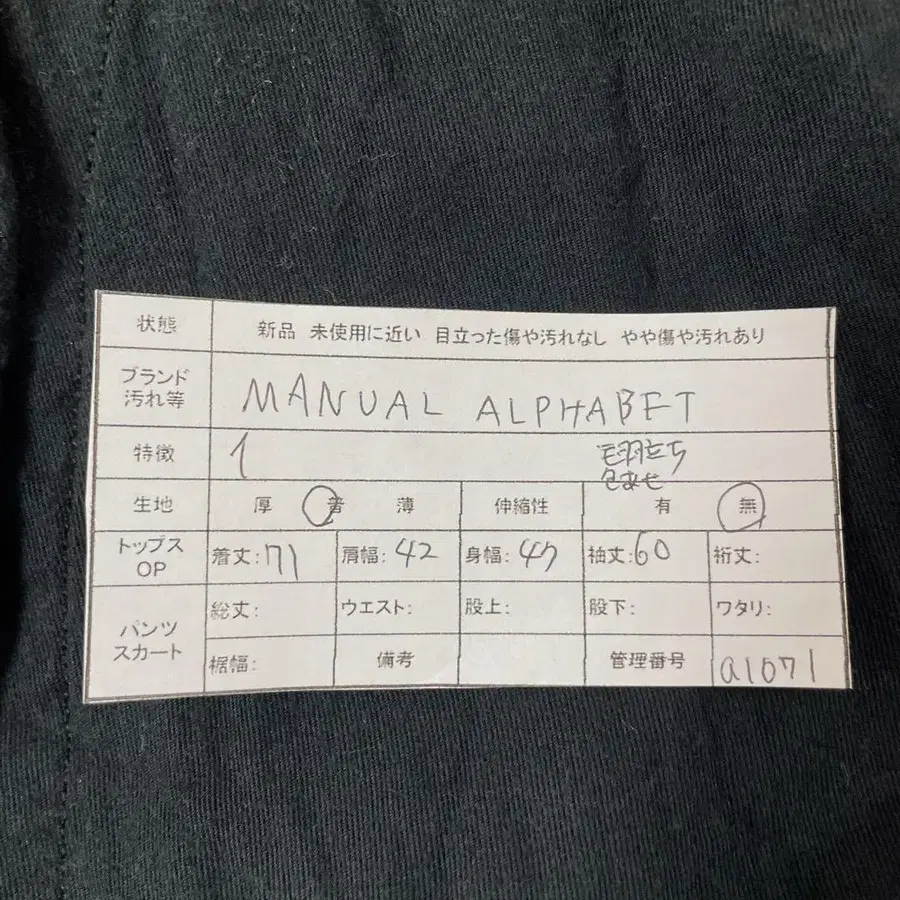 状態 新品 未使用に近い 目立った傷や汚れなし やや傷や汚れあり
ブランド
汚れ等 MANUAL ALPHABET
特徴 1 毛羽立ち
色あせ
生地 厚 普 薄 伸縮性 有 無
トップス
OP 着丈:71 肩幅:42 身幅:47 袖丈:60 裄丈:
パンツ
スカート 総丈: ウエスト: 股上: 股下: ワタリ:
裾幅: 備考 管理番号 a1071